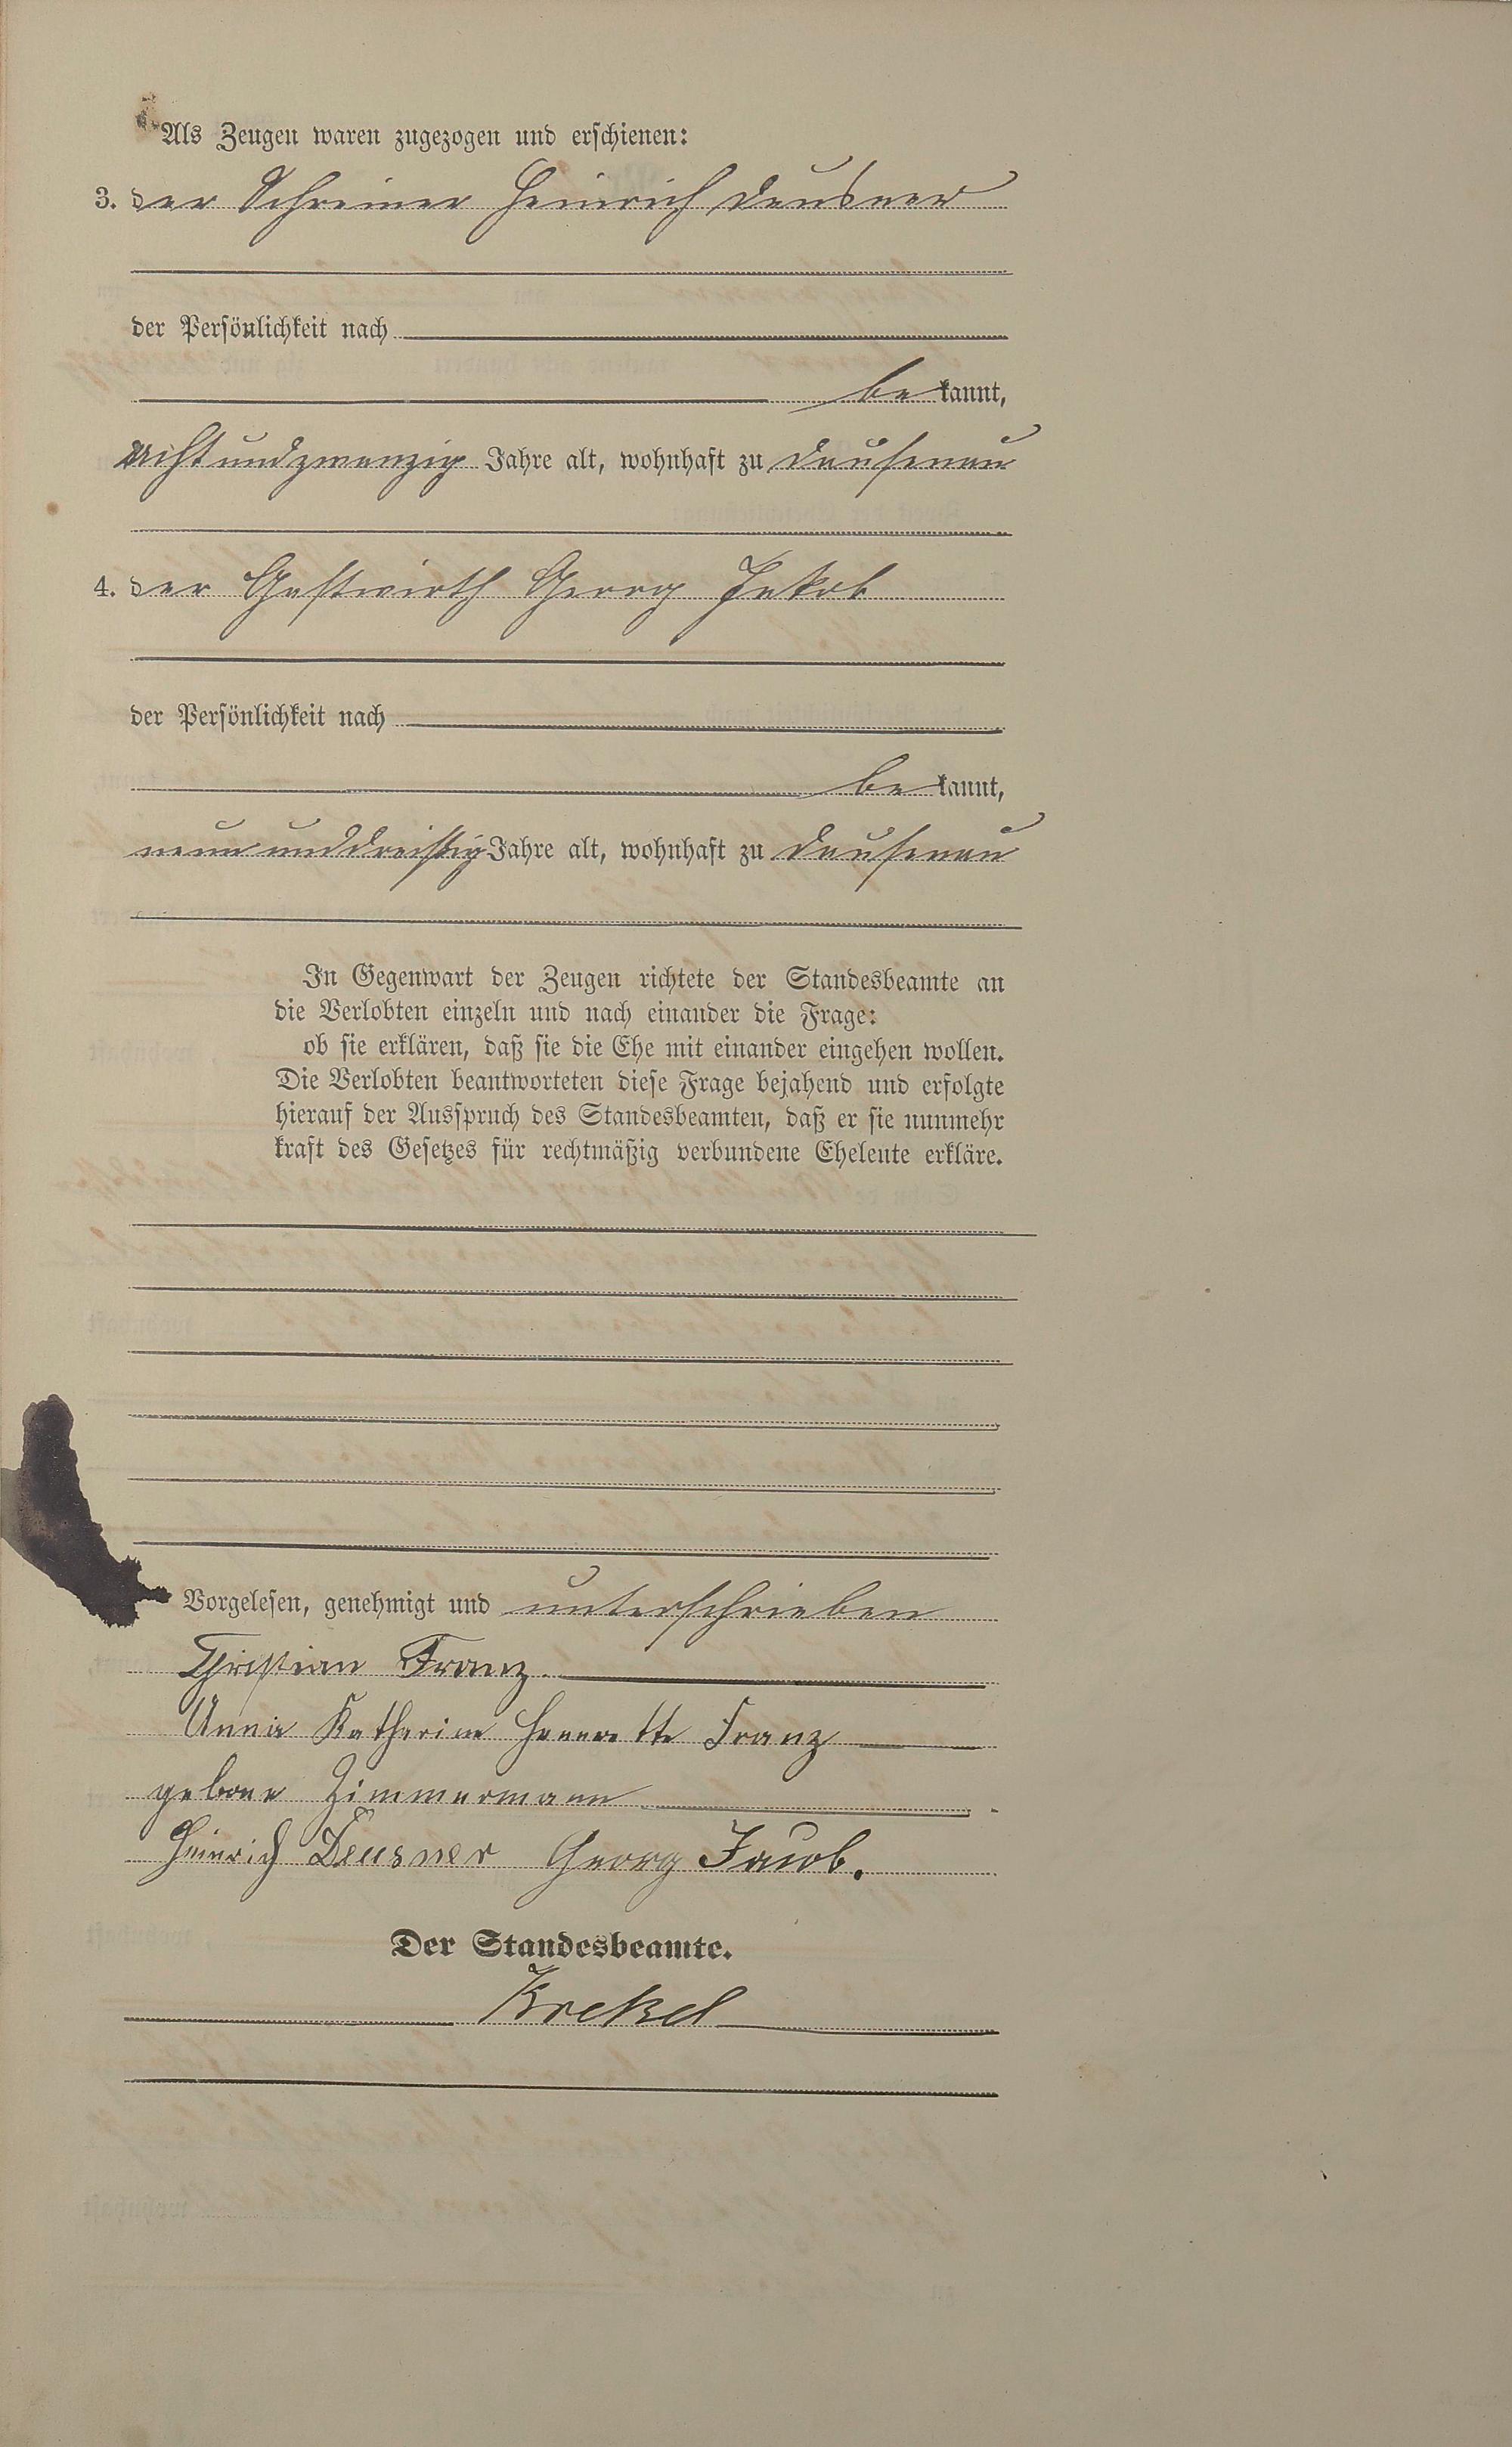 Als Zeugen waren zugezogen und erschienen:
3. der Schreiner Heinrich Deusner
der Persönlichkeit nach
bekannt,
achtundzwanzig Jahre alt, wohnhaft zu Dausenau
4. der Gastwirth Georg Jakob
der Persönlichkeit nach
bekannt,
neununddreißig Jahre alt, wohnhaft zu Dausenau
In Gegenwart der Zeugen richtete der Standesbeamte an
die Verlobten einzeln und nach einander die Frage:
ob sie erklären, daß sie die Ehe mit einander eingehen wollen.
Die Verlobten beantworteten diese Frage bejahend und erfolgte
hierauf der Ausspruch des Standesbeamten, daß er sie nunmehr
kraft des Gesetzes für rechtmäßig verbundene Eheleute erkläre.
Vorgelesen, genehmigt und unterschrieben
Christian Franz.
Anna Katharine Hennrette Franz
geborne Zimmermann
Heinrich Deusner Georg Jacob.
Der Standesbeamte.
Krekel